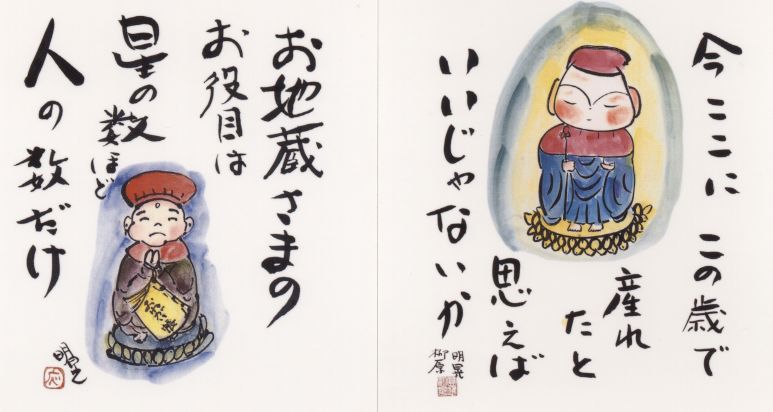 今ここに この歳で
産れ
たと
思えば
いいじゃないか
明晃
柳原
お地蔵さまの
お役目は
星の数ほど
人の数だけ